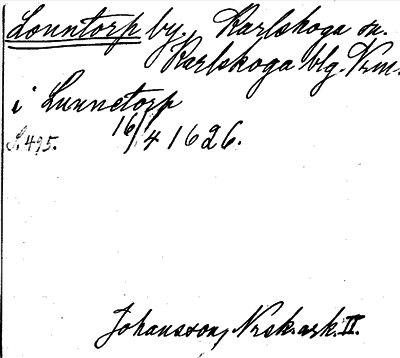 Lonntorp by, Karlskoga sn.
Karlskoga blg. Vrm.
i Lunnetorp
S. 495. 16/4 1626.
Johansson, Nrsk. ark. II.